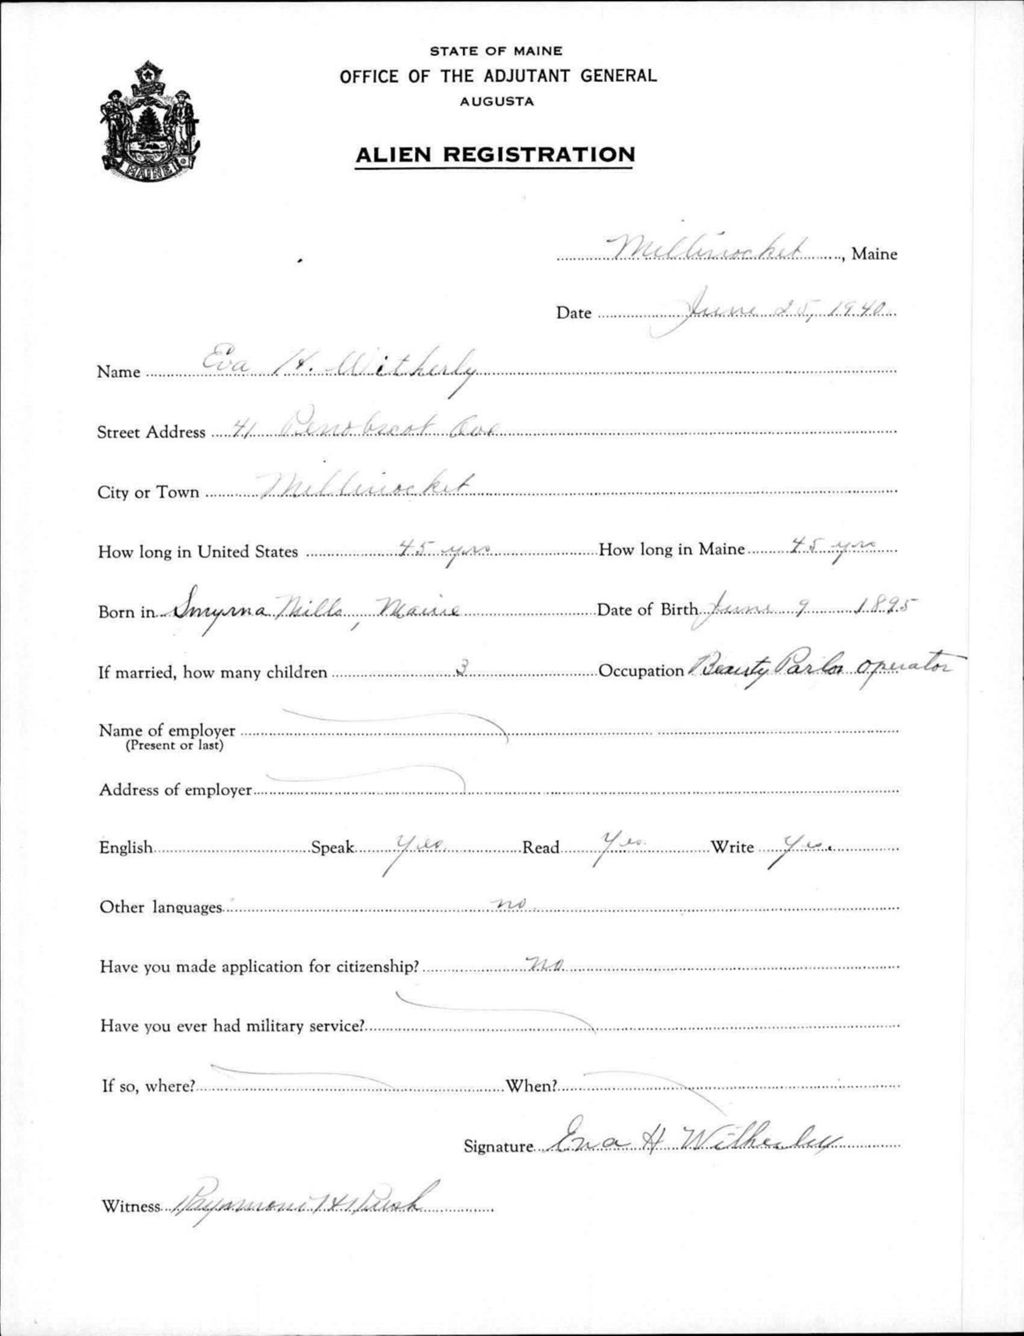 STATE OF MAINE
OFFICE OF THE ADJUTANT GENERAL
AUGUSTA
ALIEN REGISTRATION
MAINE
Millinocket, Maine
Date June 25, 1940
Name Eva H. Witherly
Street Address 41 Penobscot Ave
City or Town Millinocket
How long in United States 45 yrs How long in Maine 45 yrs
Born in Smyrna Mills, Maine Date of Birth June 9 1895
If married, how many children 3 Occupation Beauty Parlor operator
Name of employer
(Present or last)
Address of employer
English Speak Yes Read Yes Write Yes.
Other languages no
Have you made application for citizenship? no
Have you ever had military service?
If so, where? When?
Signature Eva H Witherley
Witness Raymond H